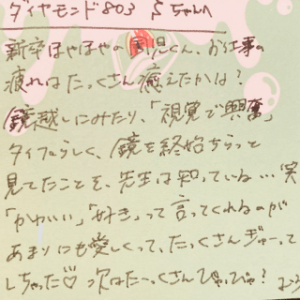 ダイヤモンド803 Sちゃんへ
新卒ほやほやの 児くん、お仕事の
疲れはたっくさん癒えたかな?
鏡越しにみたり、「視覚で興奮」
タイプらしく、鏡を終始ちらっと
見てたことを、先生は知っているね…笑
「かわいい」「好き」って言ってくれるのが
あまりにも愛しくって、たっくさんぎゅーって
しちゃった♡ 次はたーっくさん